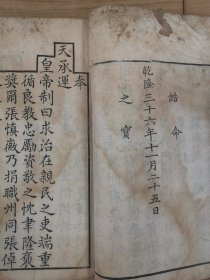 誥命
乾隆三十六年十一月二十五日
之寶
奉
天承運
皇帝制曰求治在親民之吏端重
循良教忠勵資敬之忱聿隆褒
奬爾張慎徽乃捐職州同張倬